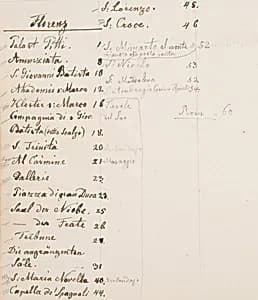 S. Lorenzo. 45.
Florenz
S. Croce. 46
Palast Pitti. 1
S. Miniato al monte 52
Annunziata.
S. Giovanni Batista 10
S. Nicolo 53
Akademie S. Marco 12
Kloster S. Marco 16
Compagnia di S. Giov.
Batista (detto Scalzo) 18.
Rom 60
S. Trinità 20
Al Carmine 21
Gallerie 23
Piazza di gran Duca 23.
Saal der Niobe. 25
— der Feate 26
Tribune 27
Die angränzenten
Säle. 31
S. Maria Novella 40.
Capella de' Spagnoli 44.